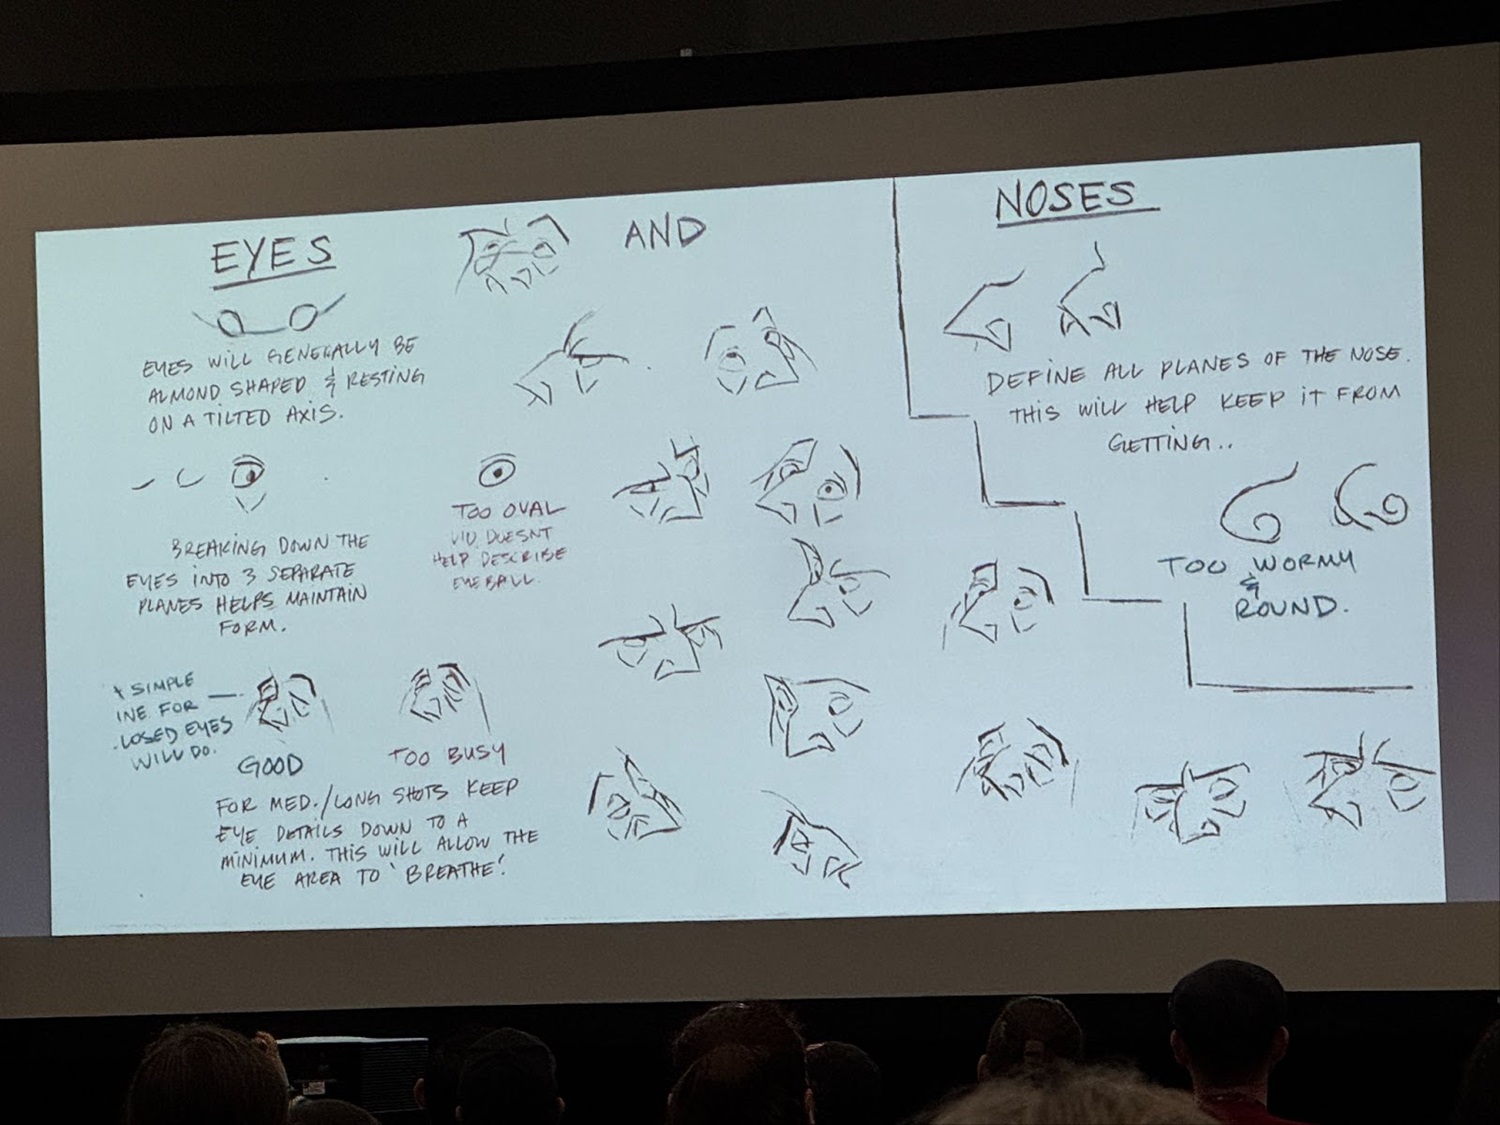 EYES
AND
NOSES
EYES WILL GENERALLY BE
ALMOND SHAPED & RESTING
ON A TILTED AXIS.
BREAKING DOWN THE
EYES INTO 3 SEPARATE
PLANES HELPS MAINTAIN
FORM.
TOO OVAL
DOESNT
HELP DESCRIBE
EYEBALL.
SIMPLE
INE FOR
LOSED EYES
WILL DO.
GOOD
TOO BUSY
FOR MED./LONG SHOTS KEEP
EYE DETAILS DOWN TO A
MINIMUM. THIS WILL ALLOW THE
EYE AREA TO 'BREATHE'.
DEFINE ALL PLANES OF THE NOSE.
THIS WILL HELP KEEP IT FROM
GETTING..
TOO WORMY
&
ROUND.